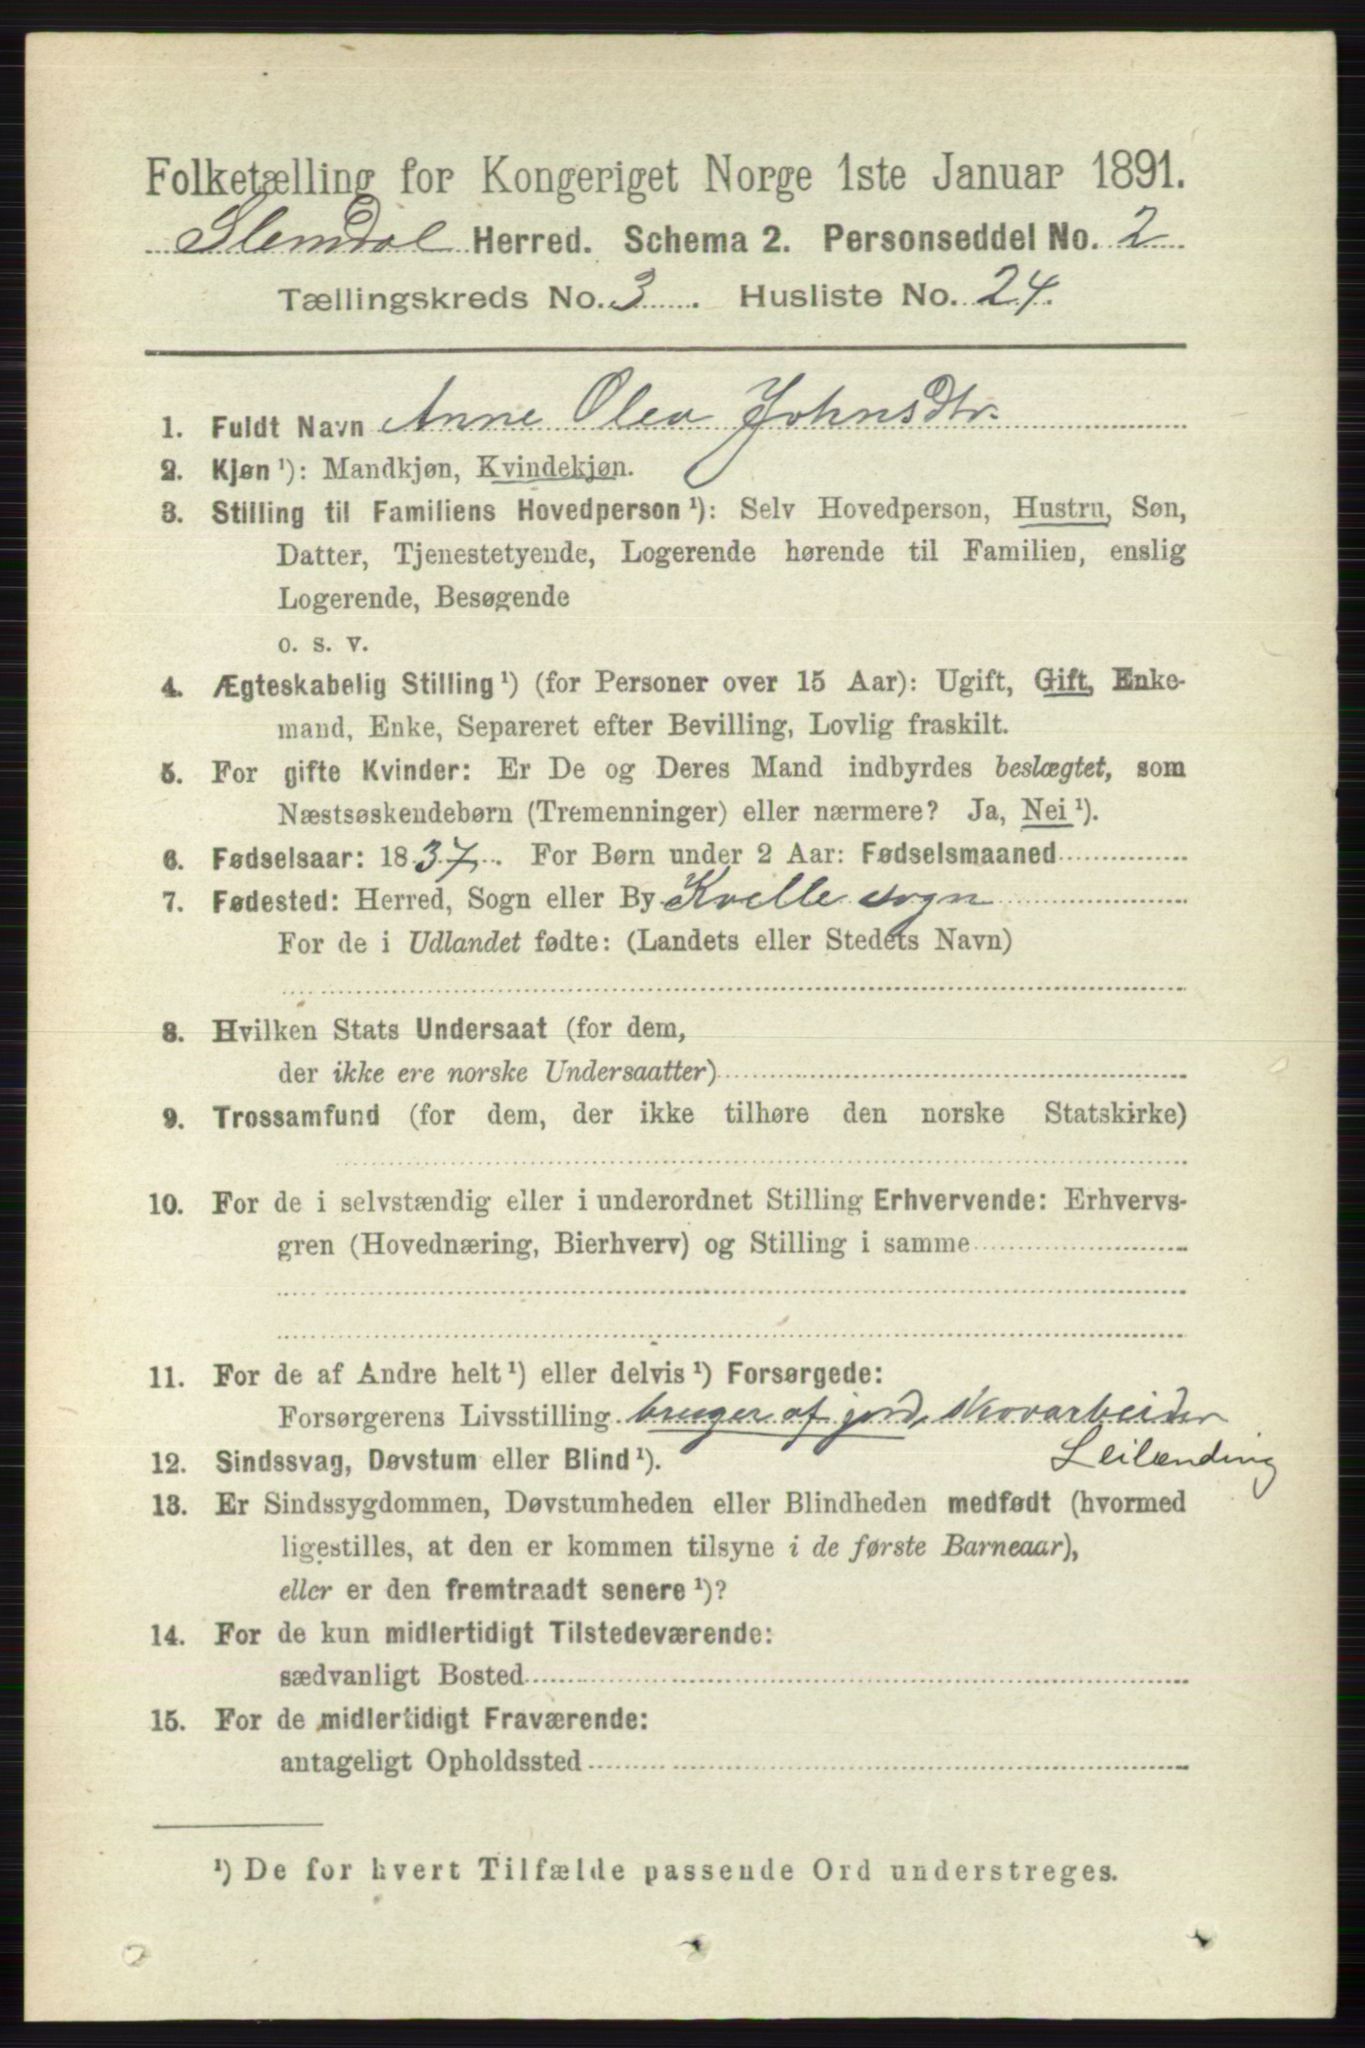 Folketælling for Kongeriget Norge 1ste Januar 1891.
Slemdal Herred. Schema 2. Personseddel No. 2
Tællingskreds No. 3. Husliste No. 24.
1. Fuldt Navn Anne Olea Johnsdtr.
2. Kjøn ¹): Mandkjøn, Kvindekjøn.
3. Stilling til Familiens Hovedperson ¹): Selv Hovedperson, Hustru, Søn,
Datter, Tjenestetyende, Logerende hørende til Familien, enslig
Logerende, Besøgende
o. s. v.
4. Ægteskabelig Stilling ¹) (for Personer over 15 Aar): Ugift, Gift, Enke-
mand, Enke, Separeret efter Bevilling, Lovlig fraskilt.
5. For gifte Kvinder: Er De og Deres Mand indbyrdes beslægtet, som
Næstsøskendebørn (Tremenninger) eller nærmere? Ja, Nei ¹).
6. Fødselsaar: 1837. For Børn under 2 Aar: Fødselsmaaned
7. Fødested: Herred, Sogn eller By Kvelle sogn
For de i Udlandet fødte: (Landets eller Stedets Navn)
8. Hvilken Stats Undersaat (for dem,
der ikke ere norske Undersaatter)
9. Trossamfund (for dem, der ikke tilhøre den norske Statskirke)
10. For de i selvstændig eller i underordnet Stilling Erhvervende: Erhvervs-
gren (Hovednæring, Bierhverv) og Stilling i samme
11. For de af Andre helt ¹) eller delvis ¹) Forsørgede:
Forsørgerens Livsstilling bruger af jord, skovarbeider
Leilænding
12. Sindssvag, Døvstum eller Blind ¹).
13. Er Sindssygdommen, Døvstumheden eller Blindheden medfødt (hvormed
ligestilles, at den er kommen tilsyne i de første Barneaar),
eller er den fremtraadt senere ¹)?
14. For de kun midlertidigt Tilstedeværende:
sædvanligt Bosted
15. For de midlertidigt Fraværende:
antageligt Opholdssted
¹) De for hvert Tilfælde passende Ord understreges.